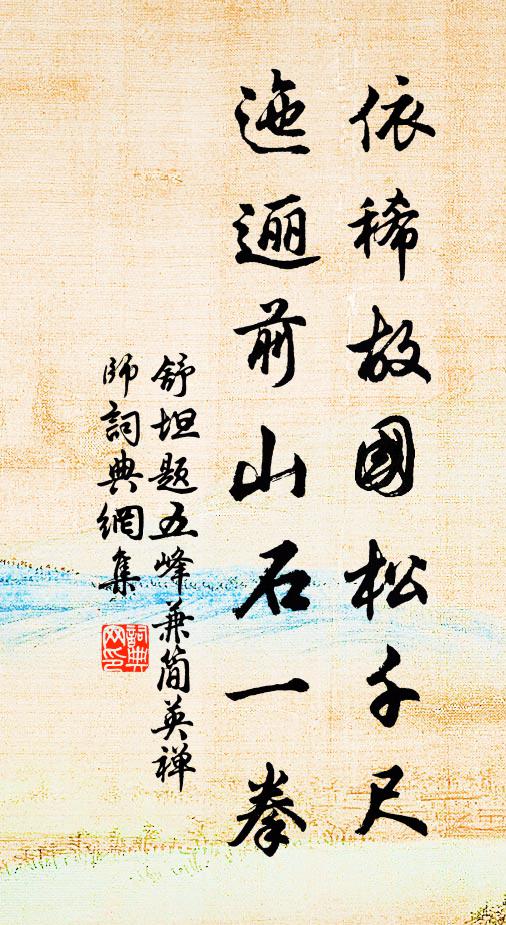 依稀故國松千尺
迤逦前山石一拳
舒坦题五峰兼简英禅
師詞典網集
詞典
网印